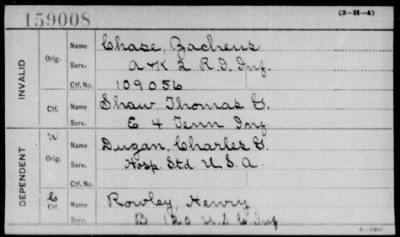 159008
(3-H-4)
INVALID
Orig.
Name Chase, Zacheus
Serv. A & K 2 R.I. Inf.
Ctf. No. 109056
Ctf.
Name Shaw Thomas G.
Serv. E 4 Tenn Inf
DEPENDENT
W
Orig.
Name Dugan, Charles G.
Serv. Hosp. Std U.S.A.
Ctf. No.
C
Ctf.
Name Rowley, Henry
B 120 U.S.C. Inf